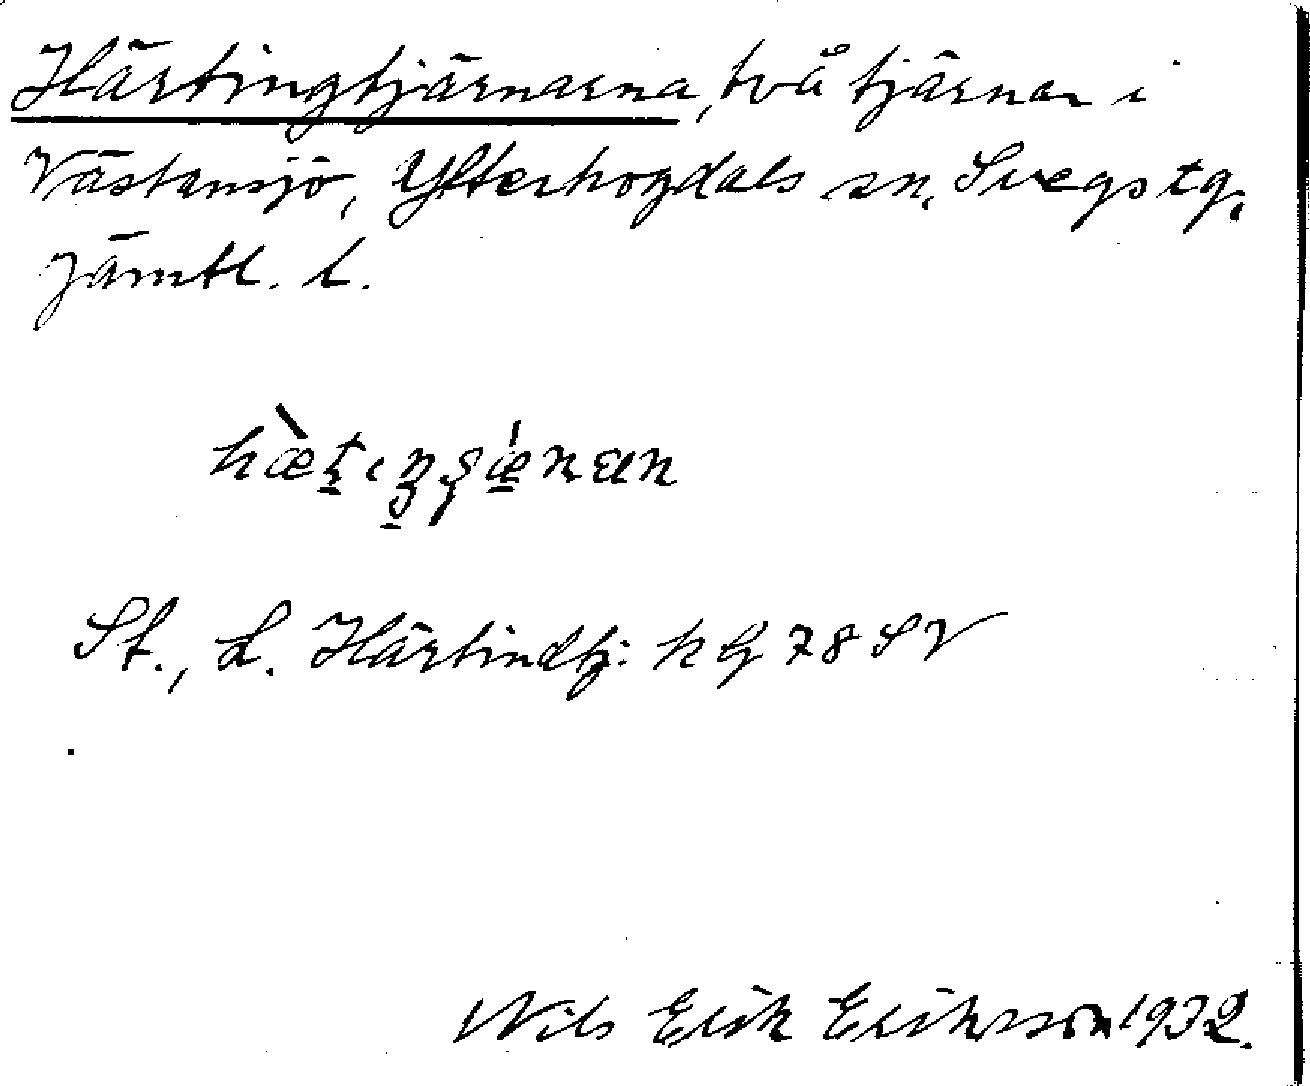 Härtingtjärnarna, två tjärnar i
Västansjö, Ytterhogdals sn, Svegs tg,
Jämtl. l.
St., L. Härtindtj: k G 78 SV
Nils Erik Eriksson 1932.